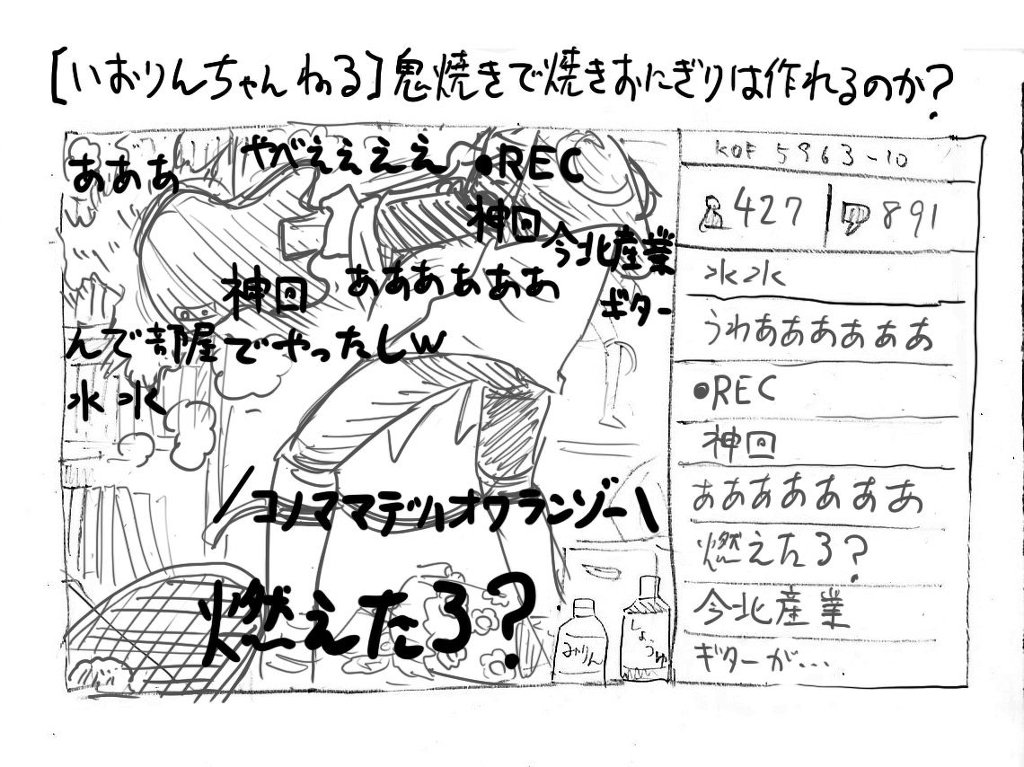 [いおりんちゃんねる]鬼焼きで焼きおにぎりは作れるのか?
あああ
やべぇぇぇぇ
●REC
神回
今北産業
神回
ああああああ
ギター
んで部屋でやったしw
水水
/コノママデハオワランゾー\
燃えたろ?
みりん
しょうゆ
KOF5963-10
427
891
水水
うわああああああ
●REC
神回
ああああああああ
燃えたろ?
今北産業
ギターが...